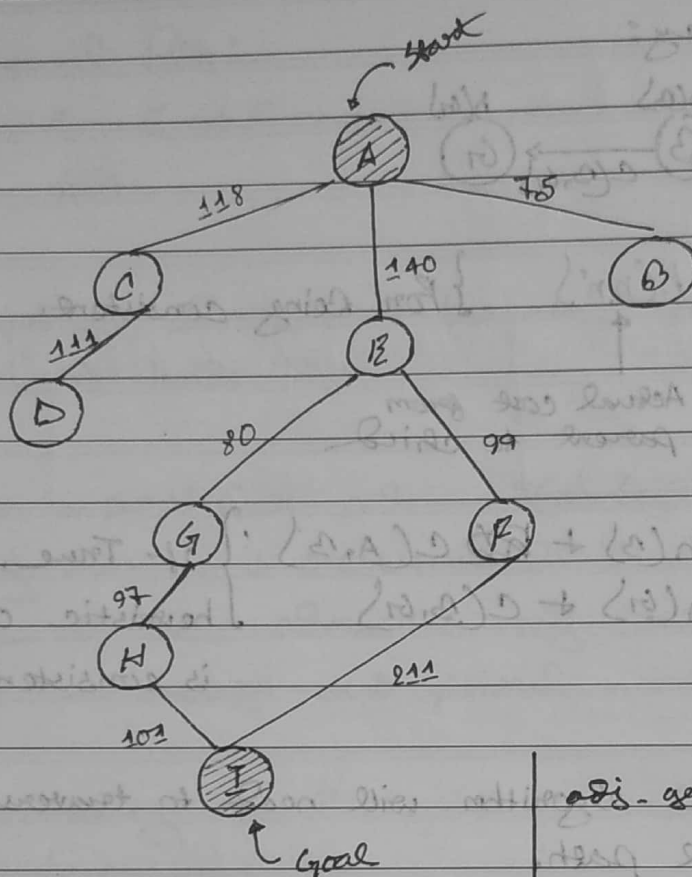 Start
A
118
75
C
140
B
111
E
D
80
99
G
F
97
H
211
101
I
Goal